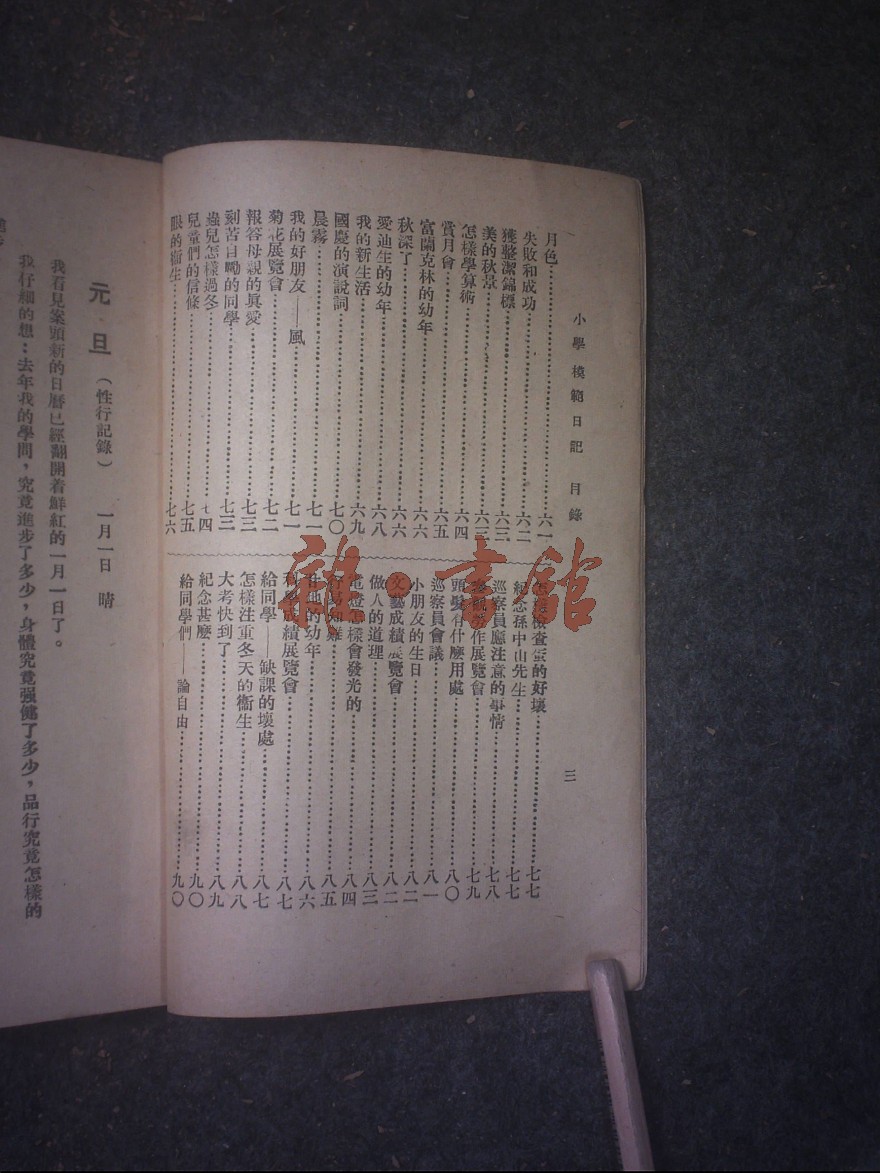 小學模範日記 目錄 三
月色……六一
失敗和成功……六二
獲整潔錦標……六三
美的秋景……六三
怎樣學算術……六四
賞月會……六五
富蘭克林的幼年……六六
秋深了……六六
愛迪生的幼年……六八
我的新生活……六九
國慶的演說詞……七〇
晨霧……七一
我的好朋友——風……七一
菊花展覽會……七二
報答母親的真愛……七三
刻苦自勵的同學……七三
蟲兒怎樣過冬……七四
兒童們的信條……七五
眼的衞生……七六
怎樣檢查蛋的好壞……七七
紀念孫中山先生……七七
巡察員應注意的事情……七八
勞作展覽會……七九
頭髮有什麼用處……八〇
巡察員會議……八一
小朋友的生日……八二
文藝成績展覽會……八二
做人的道理……八三
電燈怎樣會發光的……八四
行易知難……八五
甘地的幼年……八六
科學成績展覽會……八七
給同學——缺課的壞處……八七
怎樣注重冬天的衞生……八八
大考快到了……八九
紀念甚麼……九〇
給同學們——論自由……九〇
元旦（性行記錄） 一月一日 晴
我看見案頭新的日曆已經翻開着鮮紅的一月一日了。
我仔細的想：去年我的學問，究竟進步了多少，身體究竟强健了多少，品行究竟怎樣的
雜·書館